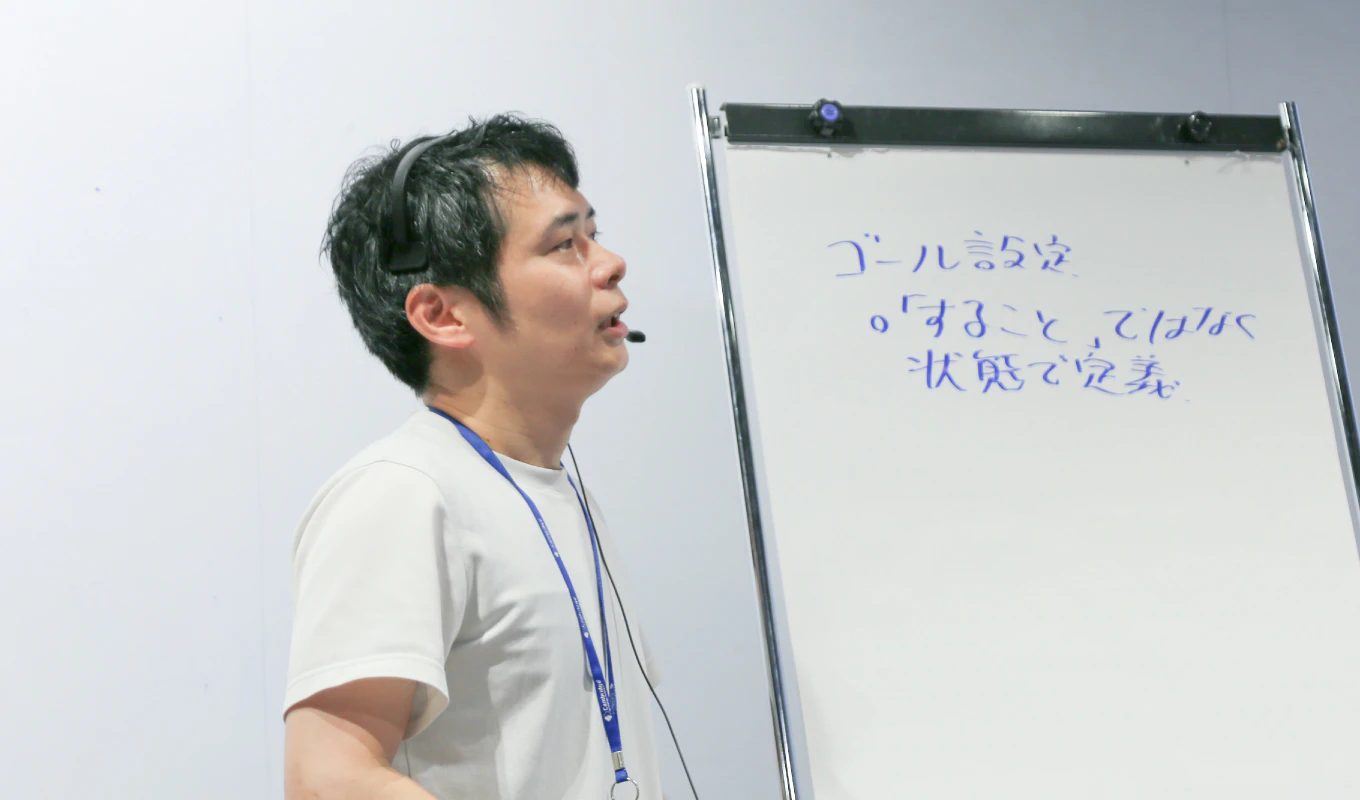 ゴール設定
○「すること」ではなく
状態で定義